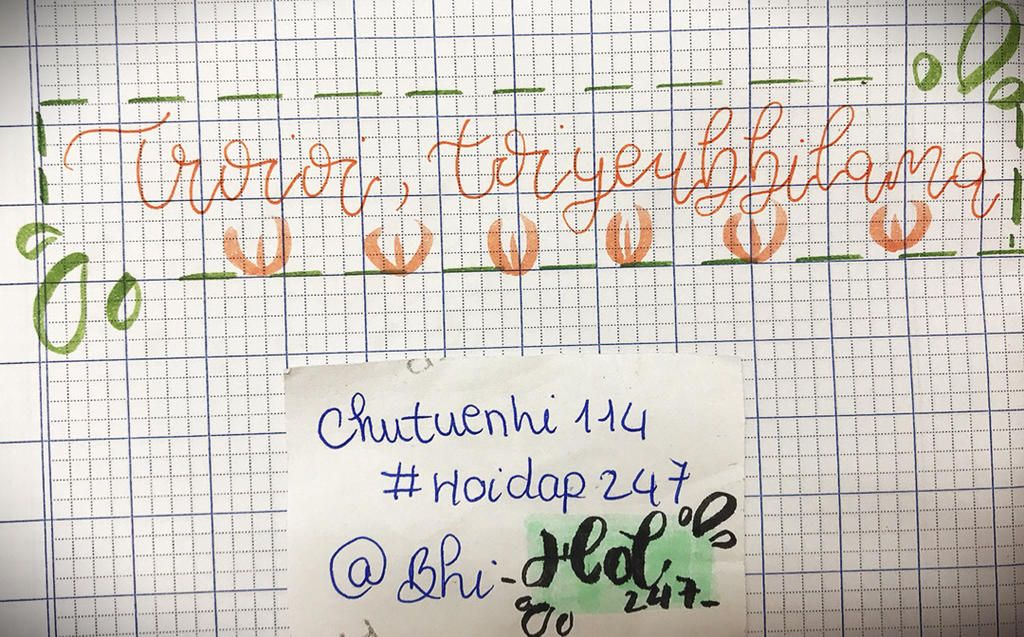 Troioi, toiyeubhilama
Chutuenhi 114
#Hoidap 247
@Bhi-
Hoi
247-